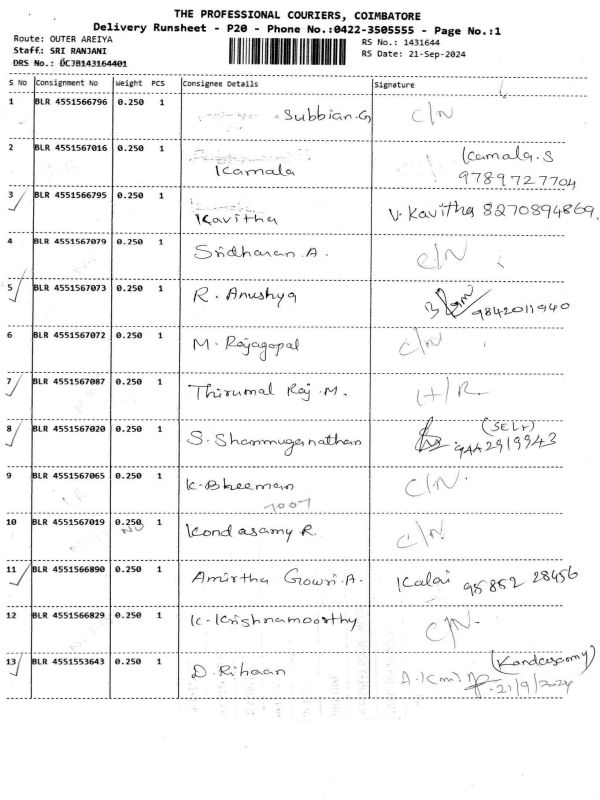 THE PROFESSIONAL COURIERS, COIMBATORE
Delivery Runsheet - P20 - Phone No.:0422-3505555 - Page No.:1
Route: OUTER AREIYA RS No.: 1431644
Staff: SRI RANJANI RS Date: 21-Sep-2024
DRS No.: DCJB143164401
S No Consignment No Weight PCS Consignee Details Signature
1 BLR 4551566796 0.250 1 Subbian.G C/N
2 BLR 4551567016 0.250 1 Kamala Kamala.S
9789727704
3 BLR 4551566795 0.250 1 Kavitha V. Kavitha 8270894869.
4 BLR 4551567079 0.250 1 Sridharan.A. C/N
5 BLR 4551567073 0.250 1 R. Anushya 9842011940
6 BLR 4551567072 0.250 1 M. Rajagopal C/N
7 BLR 4551567087 0.250 1 Thirumal Raj.M.
8 BLR 4551567020 0.250 1 S. Shanmuganathan (SELF)
9442919943
9 BLR 4551567065 0.250 1 K. Bheeman C/N.
7007
10 BLR 4551567019 0.250 1 Kondasamy R. C/N
11 BLR 4551566890 0.250 1 Amirtha Gowri.A. Kalai 95852 28456
12 BLR 4551566829 0.250 1 K. Krishnamoorthy C/N.
13 BLR 4551553643 0.250 1 D. Rihaan (Kandasamy)
21/9/2024